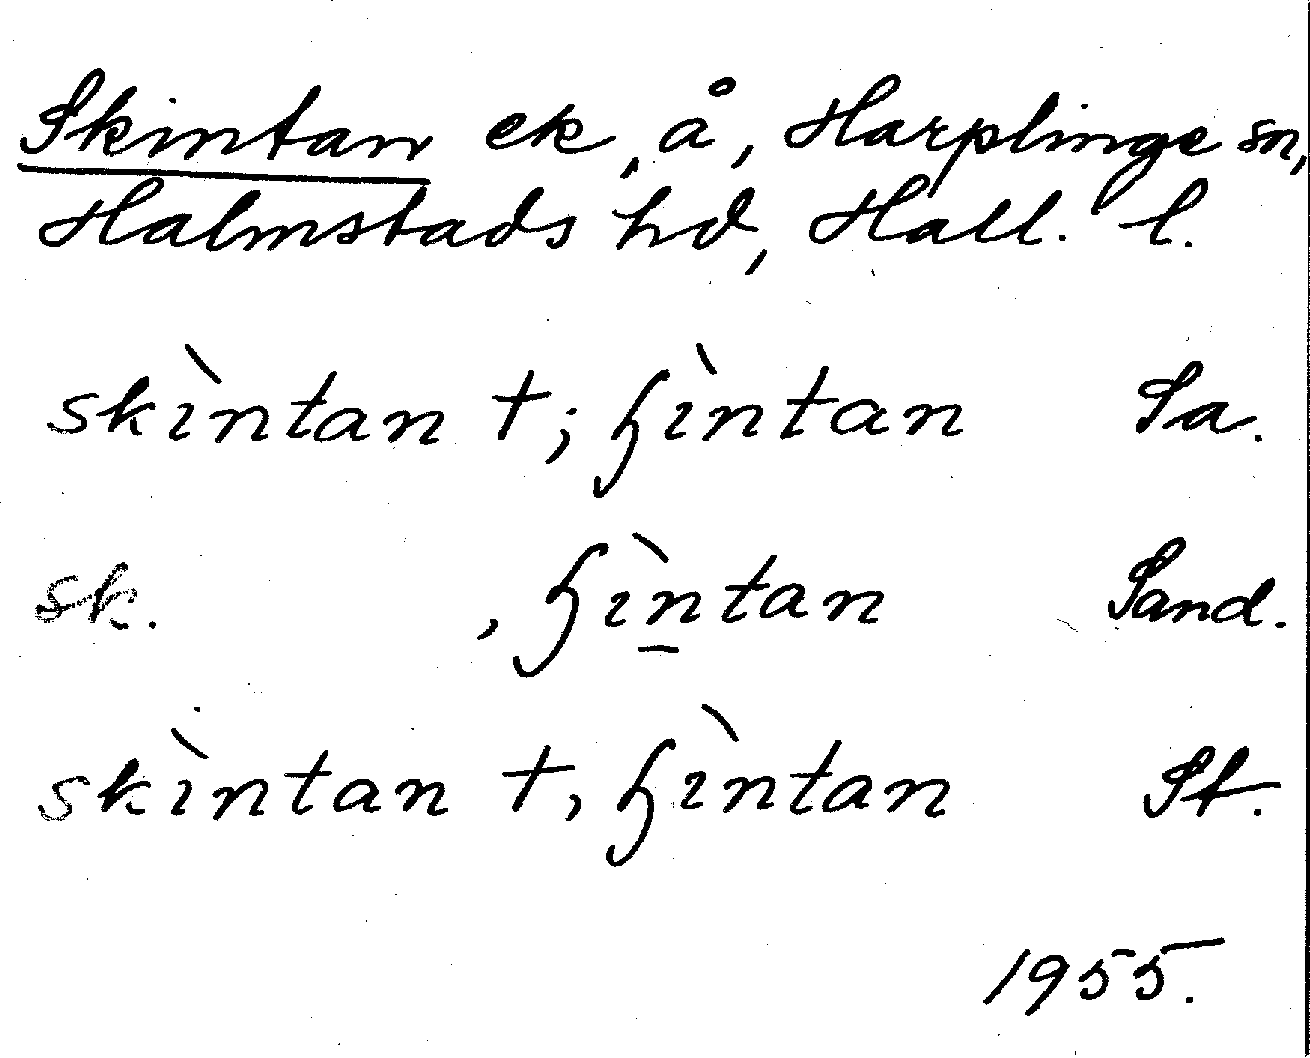 Skintan ek, å, Harplinge sn,
Halmstads hd, Hall. l.
skìntan †; ɧìntan Sa.
sk. , ɧìn̲tan Sand.
skìntan †, ɧìntan St.
1955.